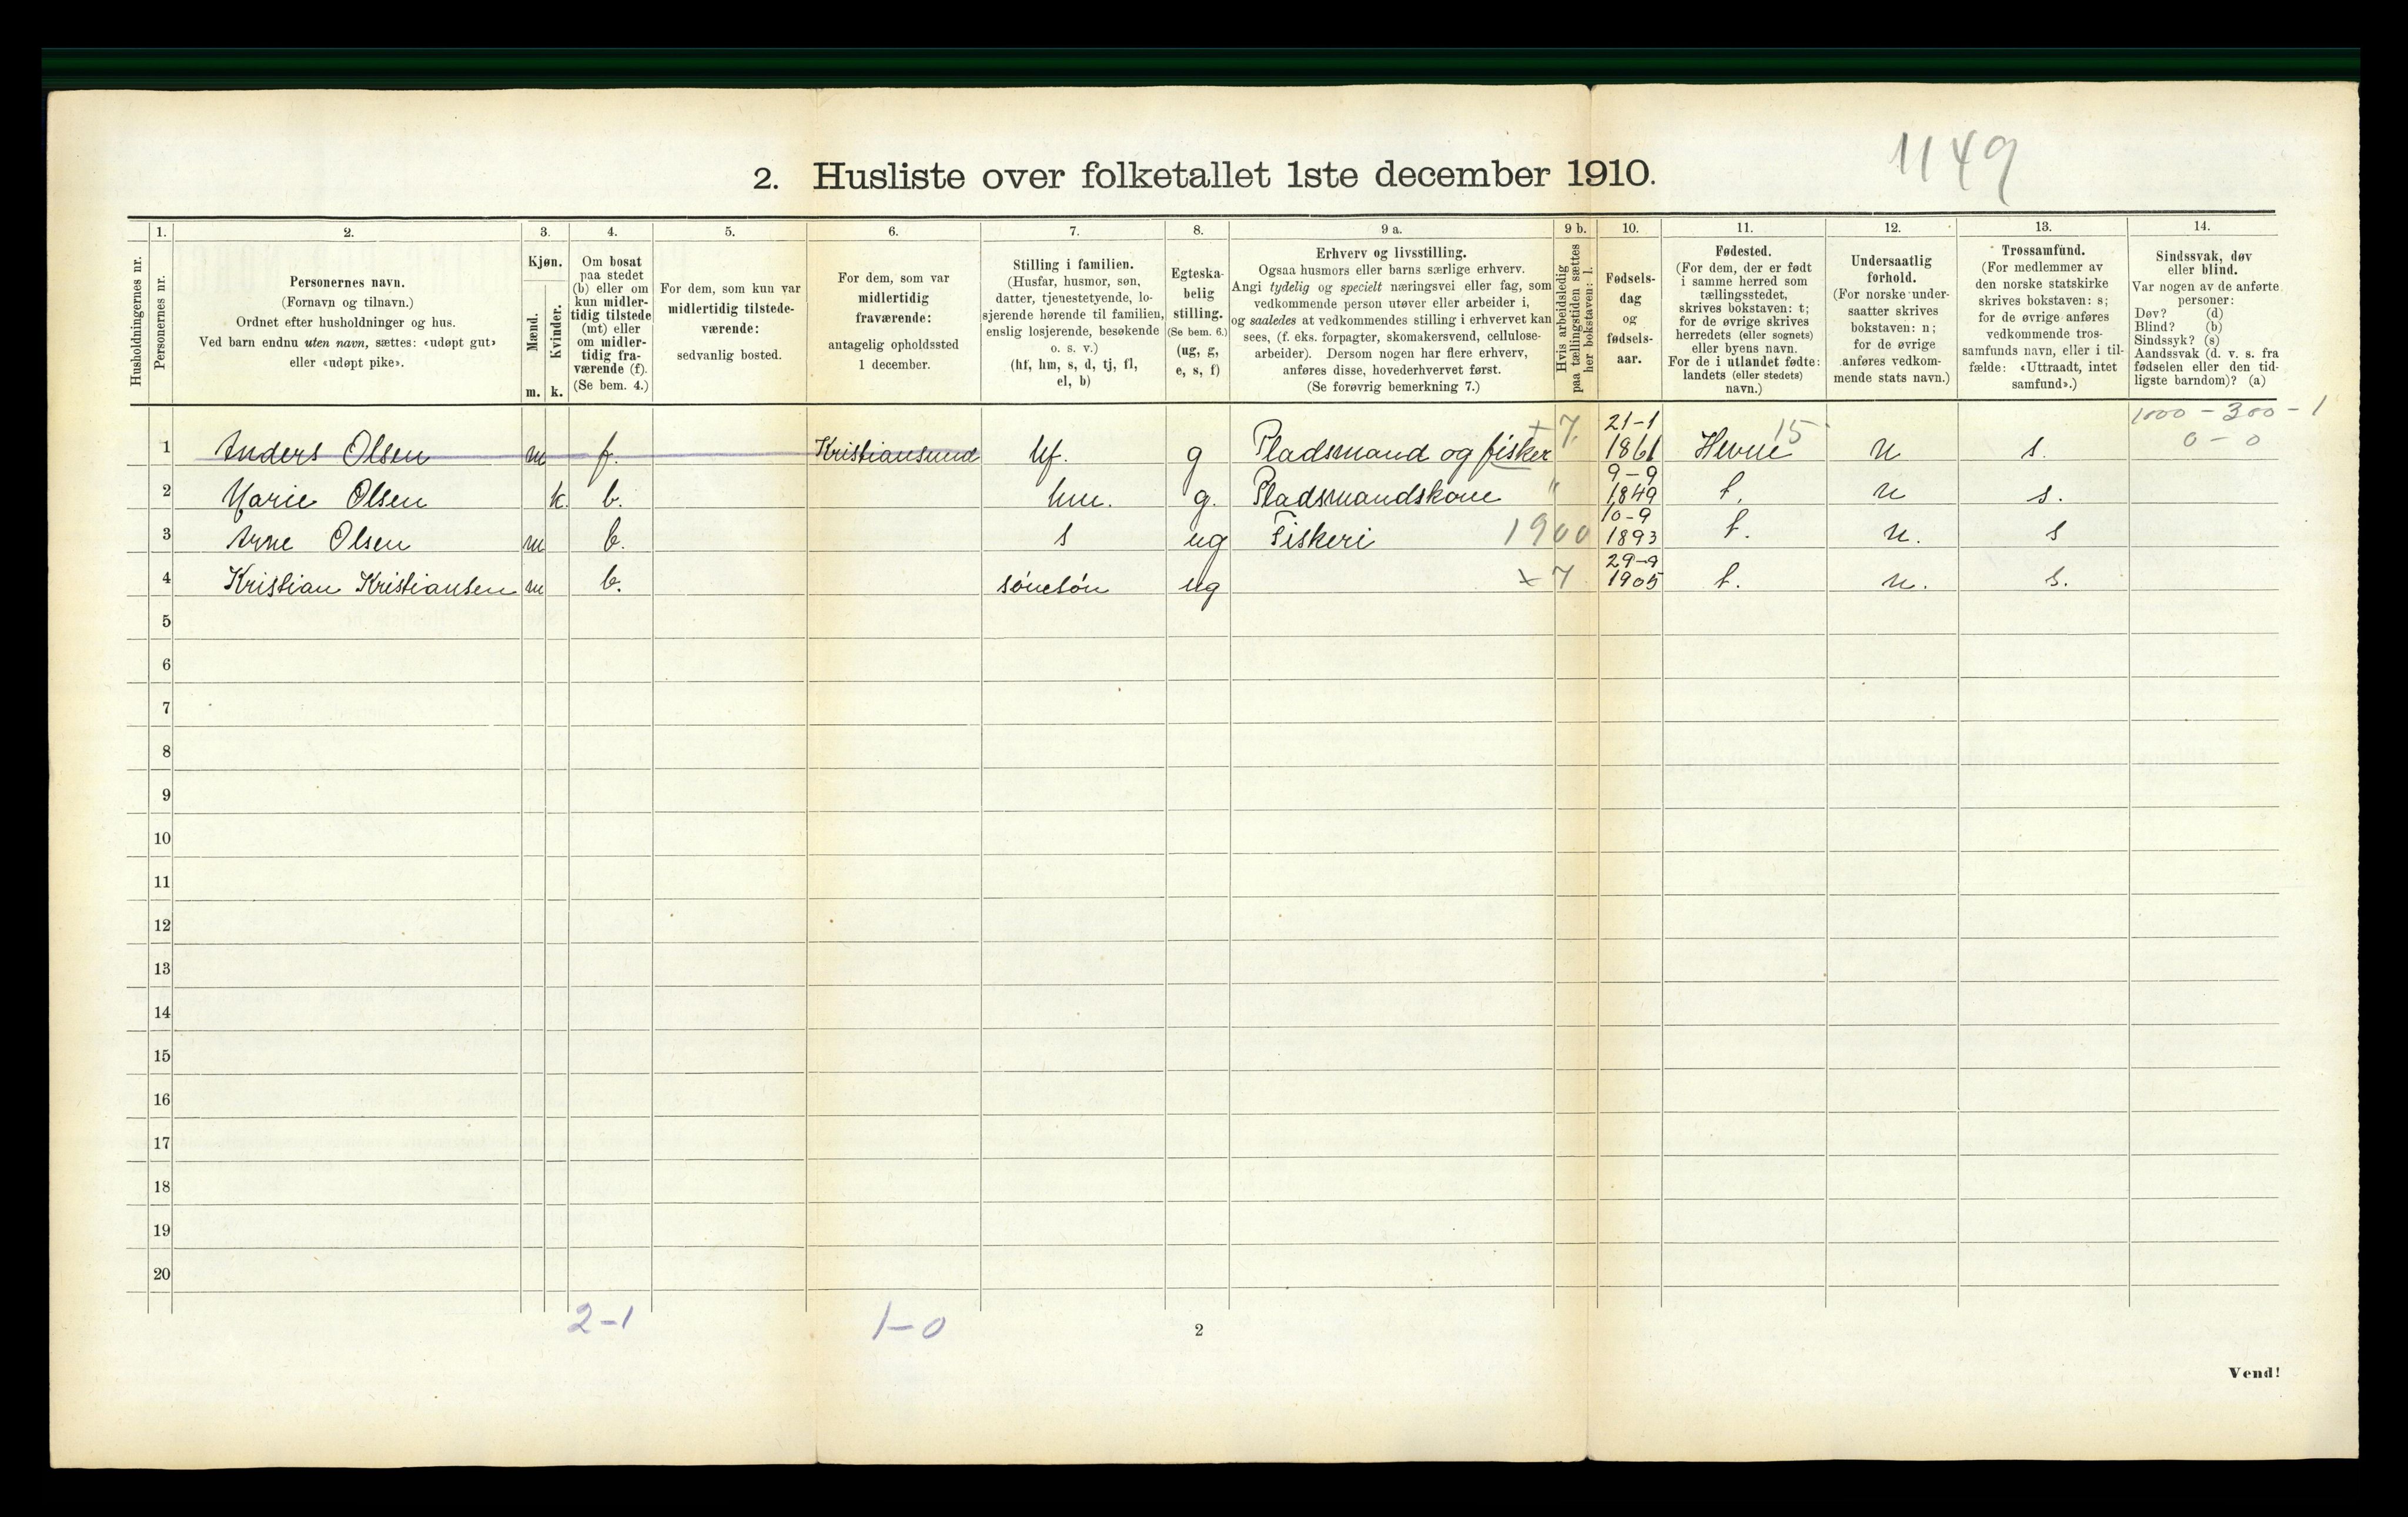 1149
2. Husliste over folketallet 1ste december 1910.
Husholdningernes nr.
1.
Personernes nr.
2.
Personernes navn.
(Fornavn og tilnavn.)
Ordnet efter husholdninger og hus.
Ved barn endnu uten navn, sættes: «udøpt gut»
eller «udøpt pike».
3.
Kjøn.
Mænd.
Kvinder.
m. k.
4.
Om bosat
paa stedet
(b) eller om
kun midler-
tidig tilstede
(mt) eller
om midler-
tidig fra-
værende (f).
(Se bem. 4.)
5.
For dem, som kun var
midlertidig tilstede-
værende:
sedvanlig bosted.
6.
For dem, som var
midlertidig
fraværende:
antagelig opholdssted
1 december.
7.
Stilling i familien.
(Husfar, husmor, søn,
datter, tjenestetyende, lo-
sjerende hørende til familien,
enslig losjerende, besøkende
o. s. v.)
(hf, hm, s, d, tj, fl,
el, b)
8.
Egteska-
belig
stilling.
(Se bem. 6.)
(ug, g,
e, s, f)
9 a.
Erhverv og livsstilling.
Ogsaa husmors eller barns særlige erhverv.
Angi tydelig og specielt næringsvei eller fag, som
vedkommende person utøver eller arbeider i,
og saaledes at vedkommendes stilling i erhvervet kan
sees, (f. eks. forpagter, skomakersvend, cellulose-
arbeider). Dersom nogen har flere erhverv,
anføres disse, hovederhvervet først.
(Se forøvrig bemerkning 7.)
9 b.
Hvis arbeidsledig
paa tællingstiden sættes
her bokstaven: l.
10.
Fødsels-
dag
og
fødsels-
aar.
11.
Fødested.
(For dem, der er født
i samme herred som
tællingsstedet,
skrives bokstaven: t;
for de øvrige skrives
herredets (eller sognets)
eller byens navn.
For de i utlandet fødte:
landets (eller stedets)
navn.)
12.
Undersaatlig
forhold.
(For norske under-
saatter skrives
bokstaven: n;
for de øvrige
anføres vedkom-
mende stats navn.)
13.
Trossamfund.
(For medlemmer av
den norske statskirke
skrives bokstaven: s;
for de øvrige anføres
vedkommende tros-
samfunds navn, eller i til-
fælde: «Uttraadt, intet
samfund».)
14.
Sindssvak, døv
eller blind.
Var nogen av de anførte
personer:
Døv? (d)
Blind? (b)
Sindssyk? (s)
Aandssvak (d. v. s. fra
fødselen eller den tid-
ligste barndom)? (a)
1000 - 300 - 1
0 - 0
1 Anders Olsen m f. Kristiansund hf. g Pladsmand og fisker + 7. 21-1 1861 Hevne 15 n s.
2 Marie Olsen k. b. hm. g. Pladsmandskone " 9-9 1849 t. n s.
3 Arne Olsen m b. s ug Fiskeri 1900 10-9 1893 t. n. s
4 Kristian Kristiansen m b. sønesøn ug + 7 29-9 1905 t. n. s.
5
6
7
8
9
10
11
12
13
14
15
16
17
18
19
20
2-1 1-0
2
Vend!